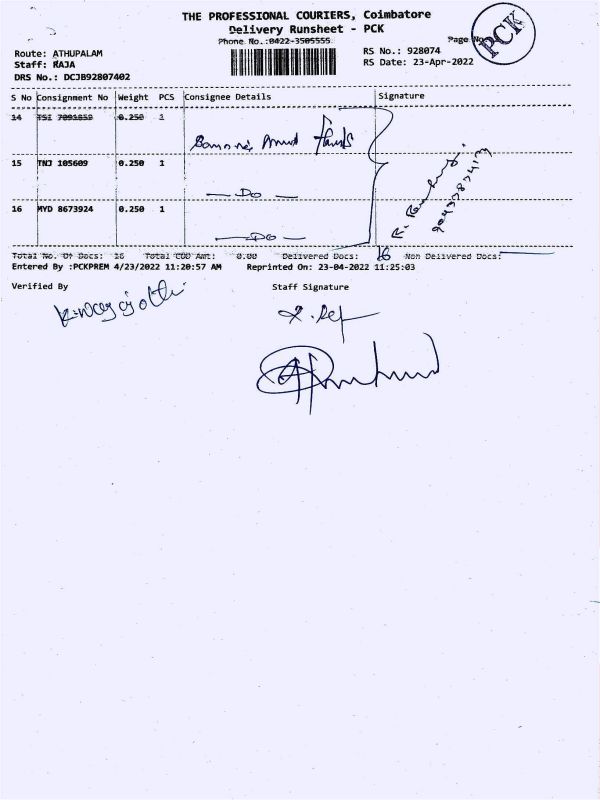 THE PROFESSIONAL COURIERS, Coimbatore
Delivery Runsheet - PCK
Phone No.:0422-3505555
Page No
PCK
Route: ATHUPALAM
Staff: RAJA
DRS No.: DCJB92807402
RS No.: 928074
RS Date: 23-Apr-2022
S No Consignment No Weight PCS Consignee Details Signature
14 0.250 1
15 TNJ 105609 0.250 1
— Do —
16 MYD 8673924 0.250 1
— Do —
Total No. Of Docs: 16 Total COD Amt: 0.00 Delivered Docs: 16 Non Delivered Docs:
Entered By :PCKPREM 4/23/2022 11:20:57 AM Reprinted On: 23-04-2022 11:25:03
Verified By Staff Signature